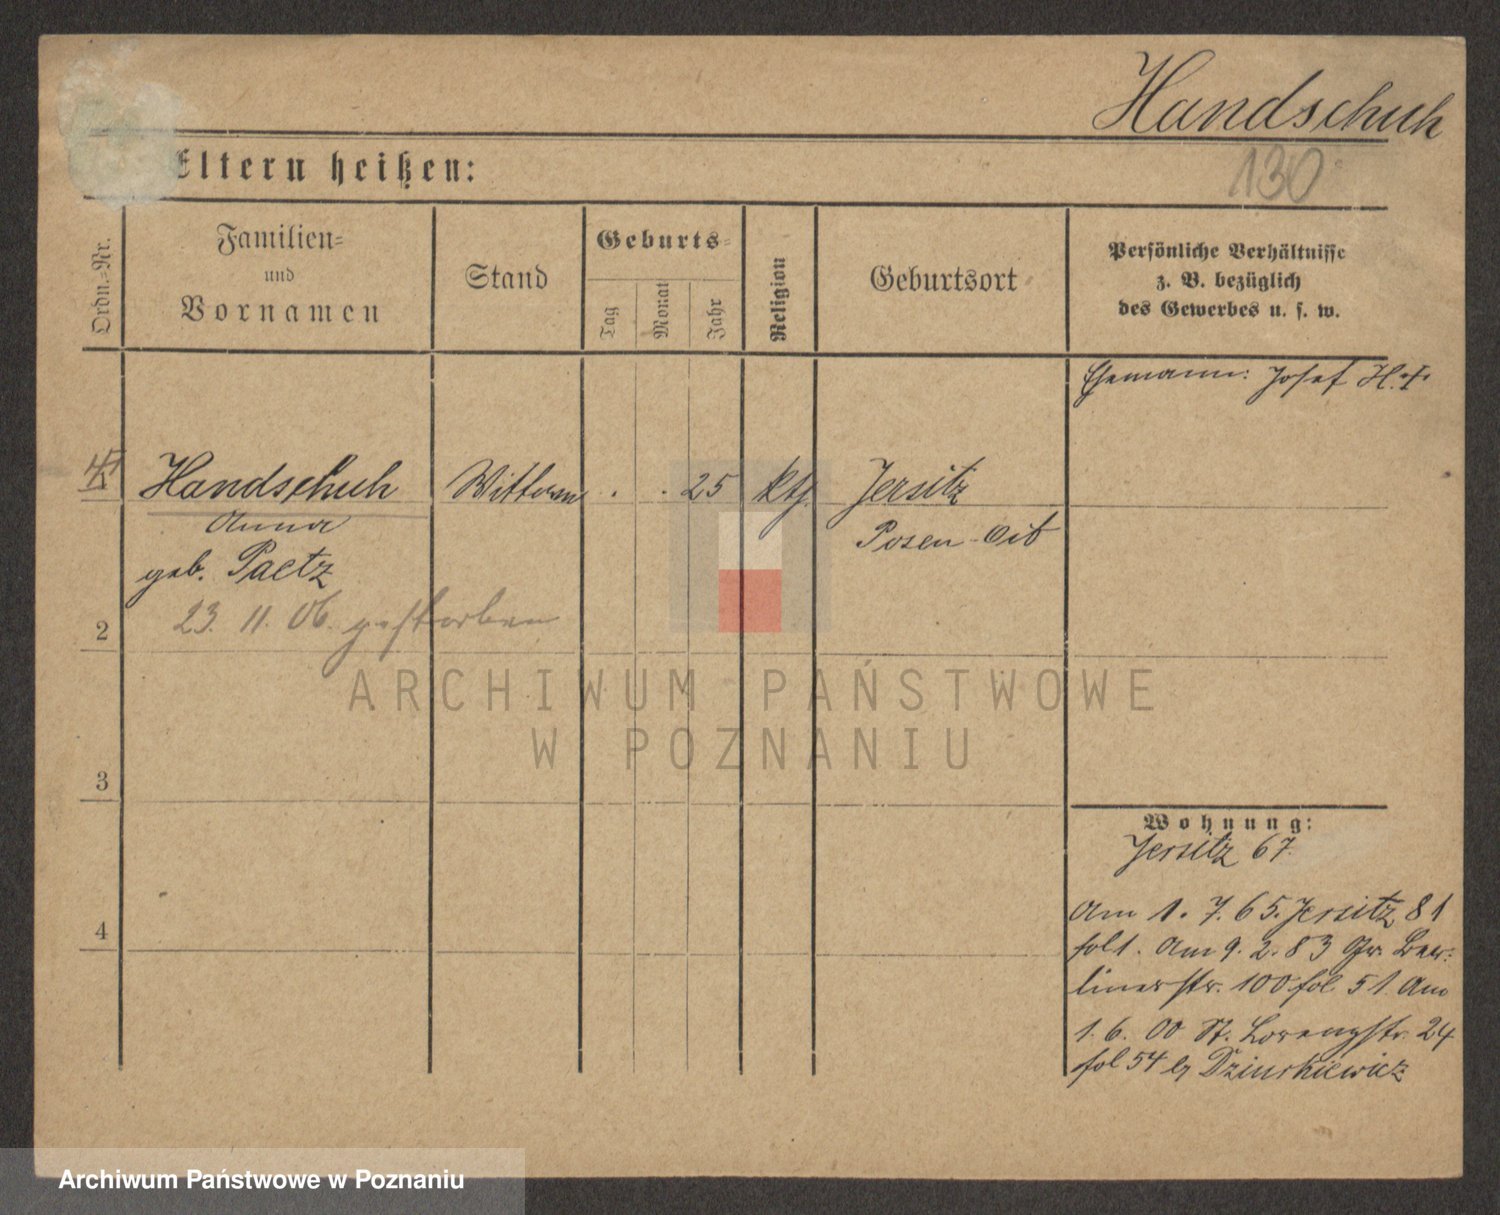 Handschuh
130
Eltern heißen:
Ordn.-Nr.
Familien-
und
Vornamen
Stand
Geburts-
Tag
Monat
Jahr
Religion
Geburtsort
Persönliche Verhältnisse
z. B. bezüglich
des Gewerbes u. s. w.
Ehemann: Josef H.
1
Handschuh
Wittwe
25
kth.
Jersitz
Anna
Posen-Ost
geb. Paetz
23. 11. 06. gestorben
2
ARCHIWUM PAŃSTWOWE
W POZNANIU
3
Wohnung:
Jersitz 67.
Am 1. 7. 65. Jersitz 81
fol 1. Am 9. 2. 83 Gr. Ber-
linerstr. 100 fol 51. Am
1. 6. 00 St. Lorenzstr. 24
fol 54 Dziurkiewicz
4
Archiwum Państwowe w Poznaniu